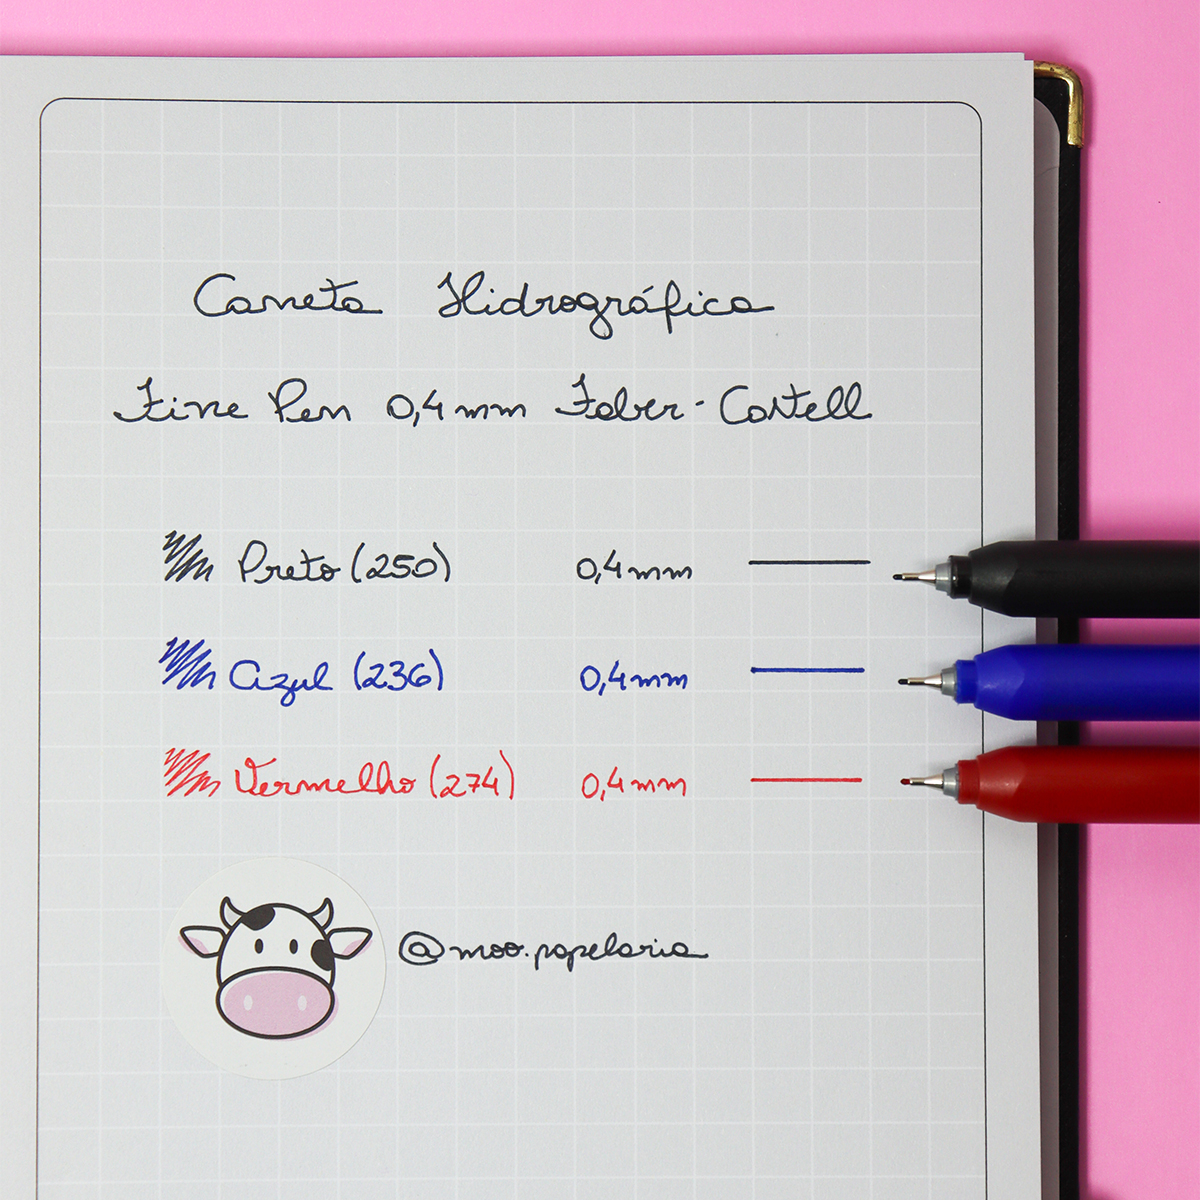 Caneta Hidrográfica
Fine Pen 0,4mm Faber-Castell
Preto (250) 0,4mm
Azul (236) 0,4mm
Vermelho (274) 0,4mm
@moo.papelaria